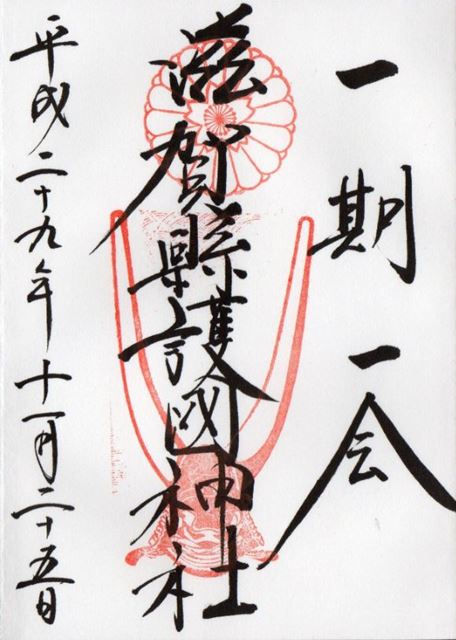 一期一会
滋賀縣護國神社
平成二十九年十一月二十五日